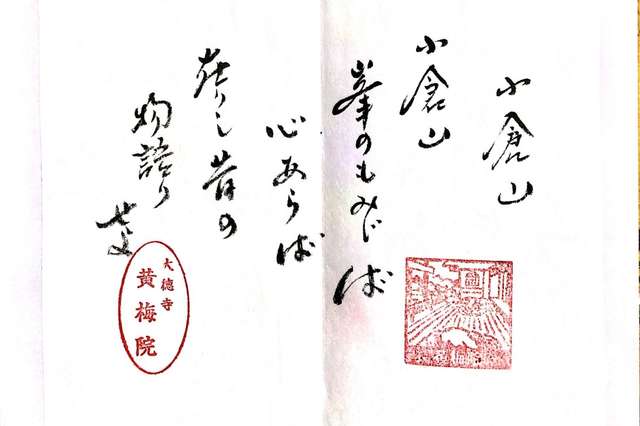 小倉山
小倉山
峯のもみじば
心あらば
在りし昔の
物語り
せよ
大徳寺
黄梅院